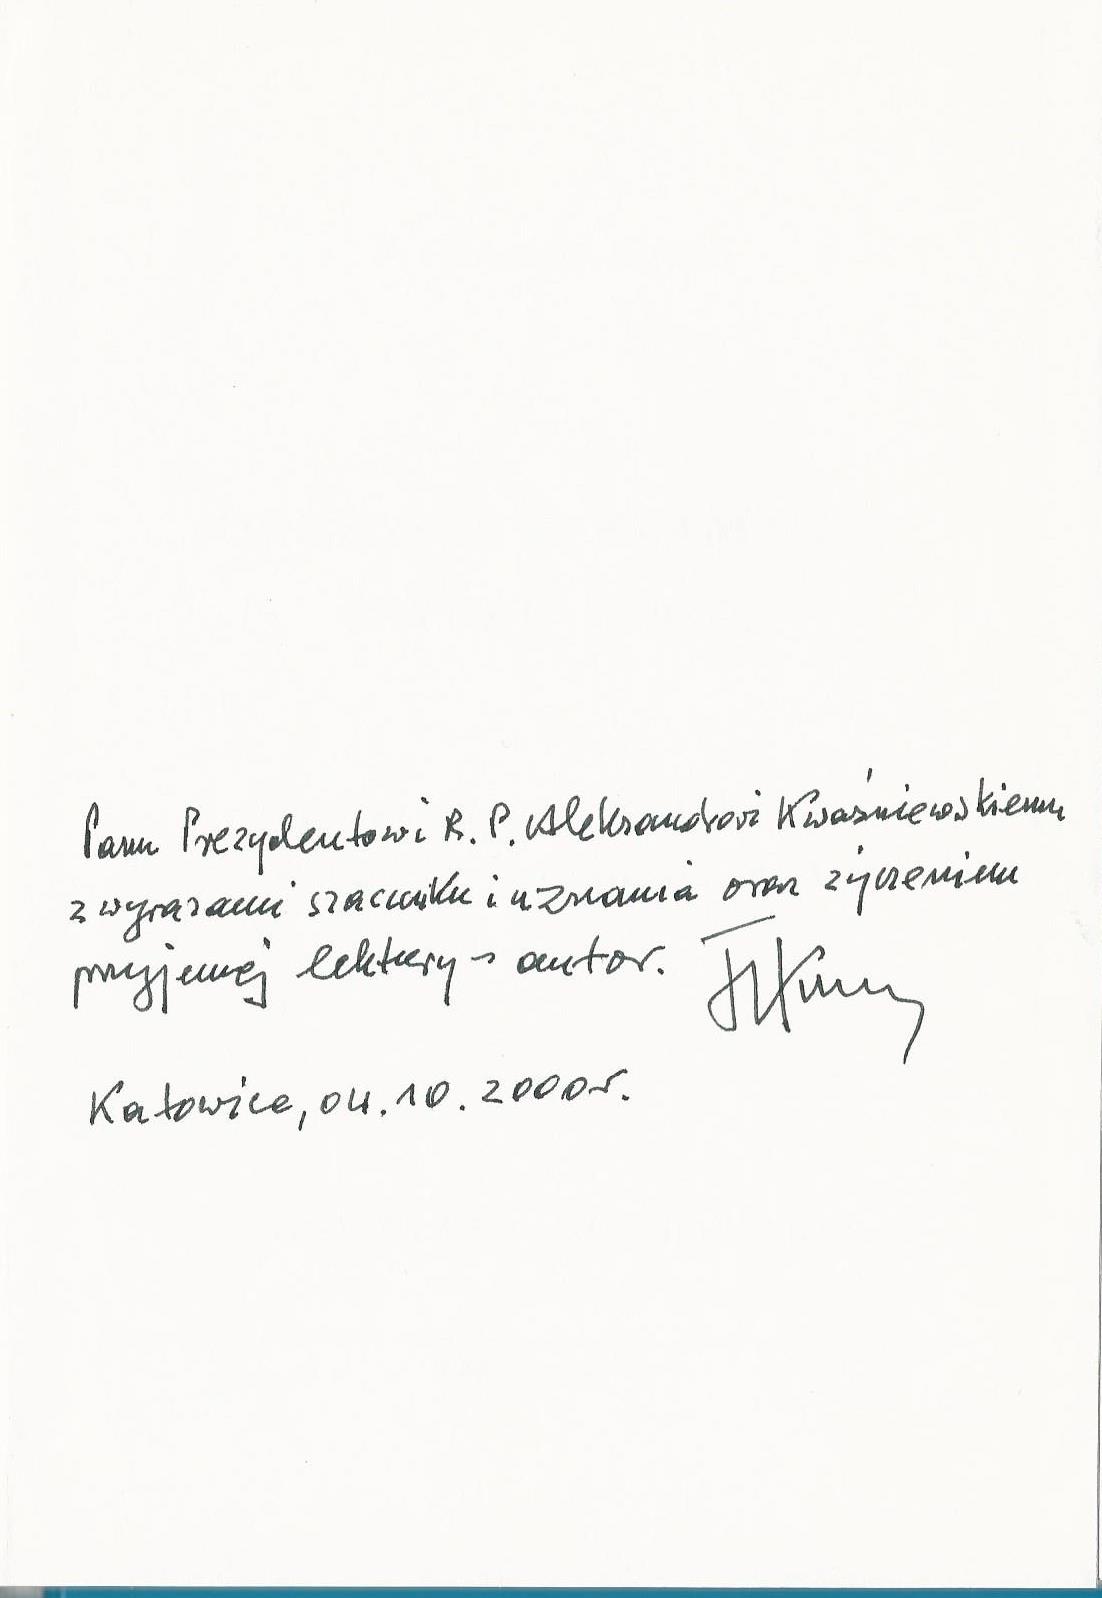 Panu Prezydentowi R.P. Aleksandrowi Kwaśniewskiemu
z wyrazami szacunku i uznania oraz życzeniem
przyjemnej lektury - autor.
Katowice, 04.10.2000r.